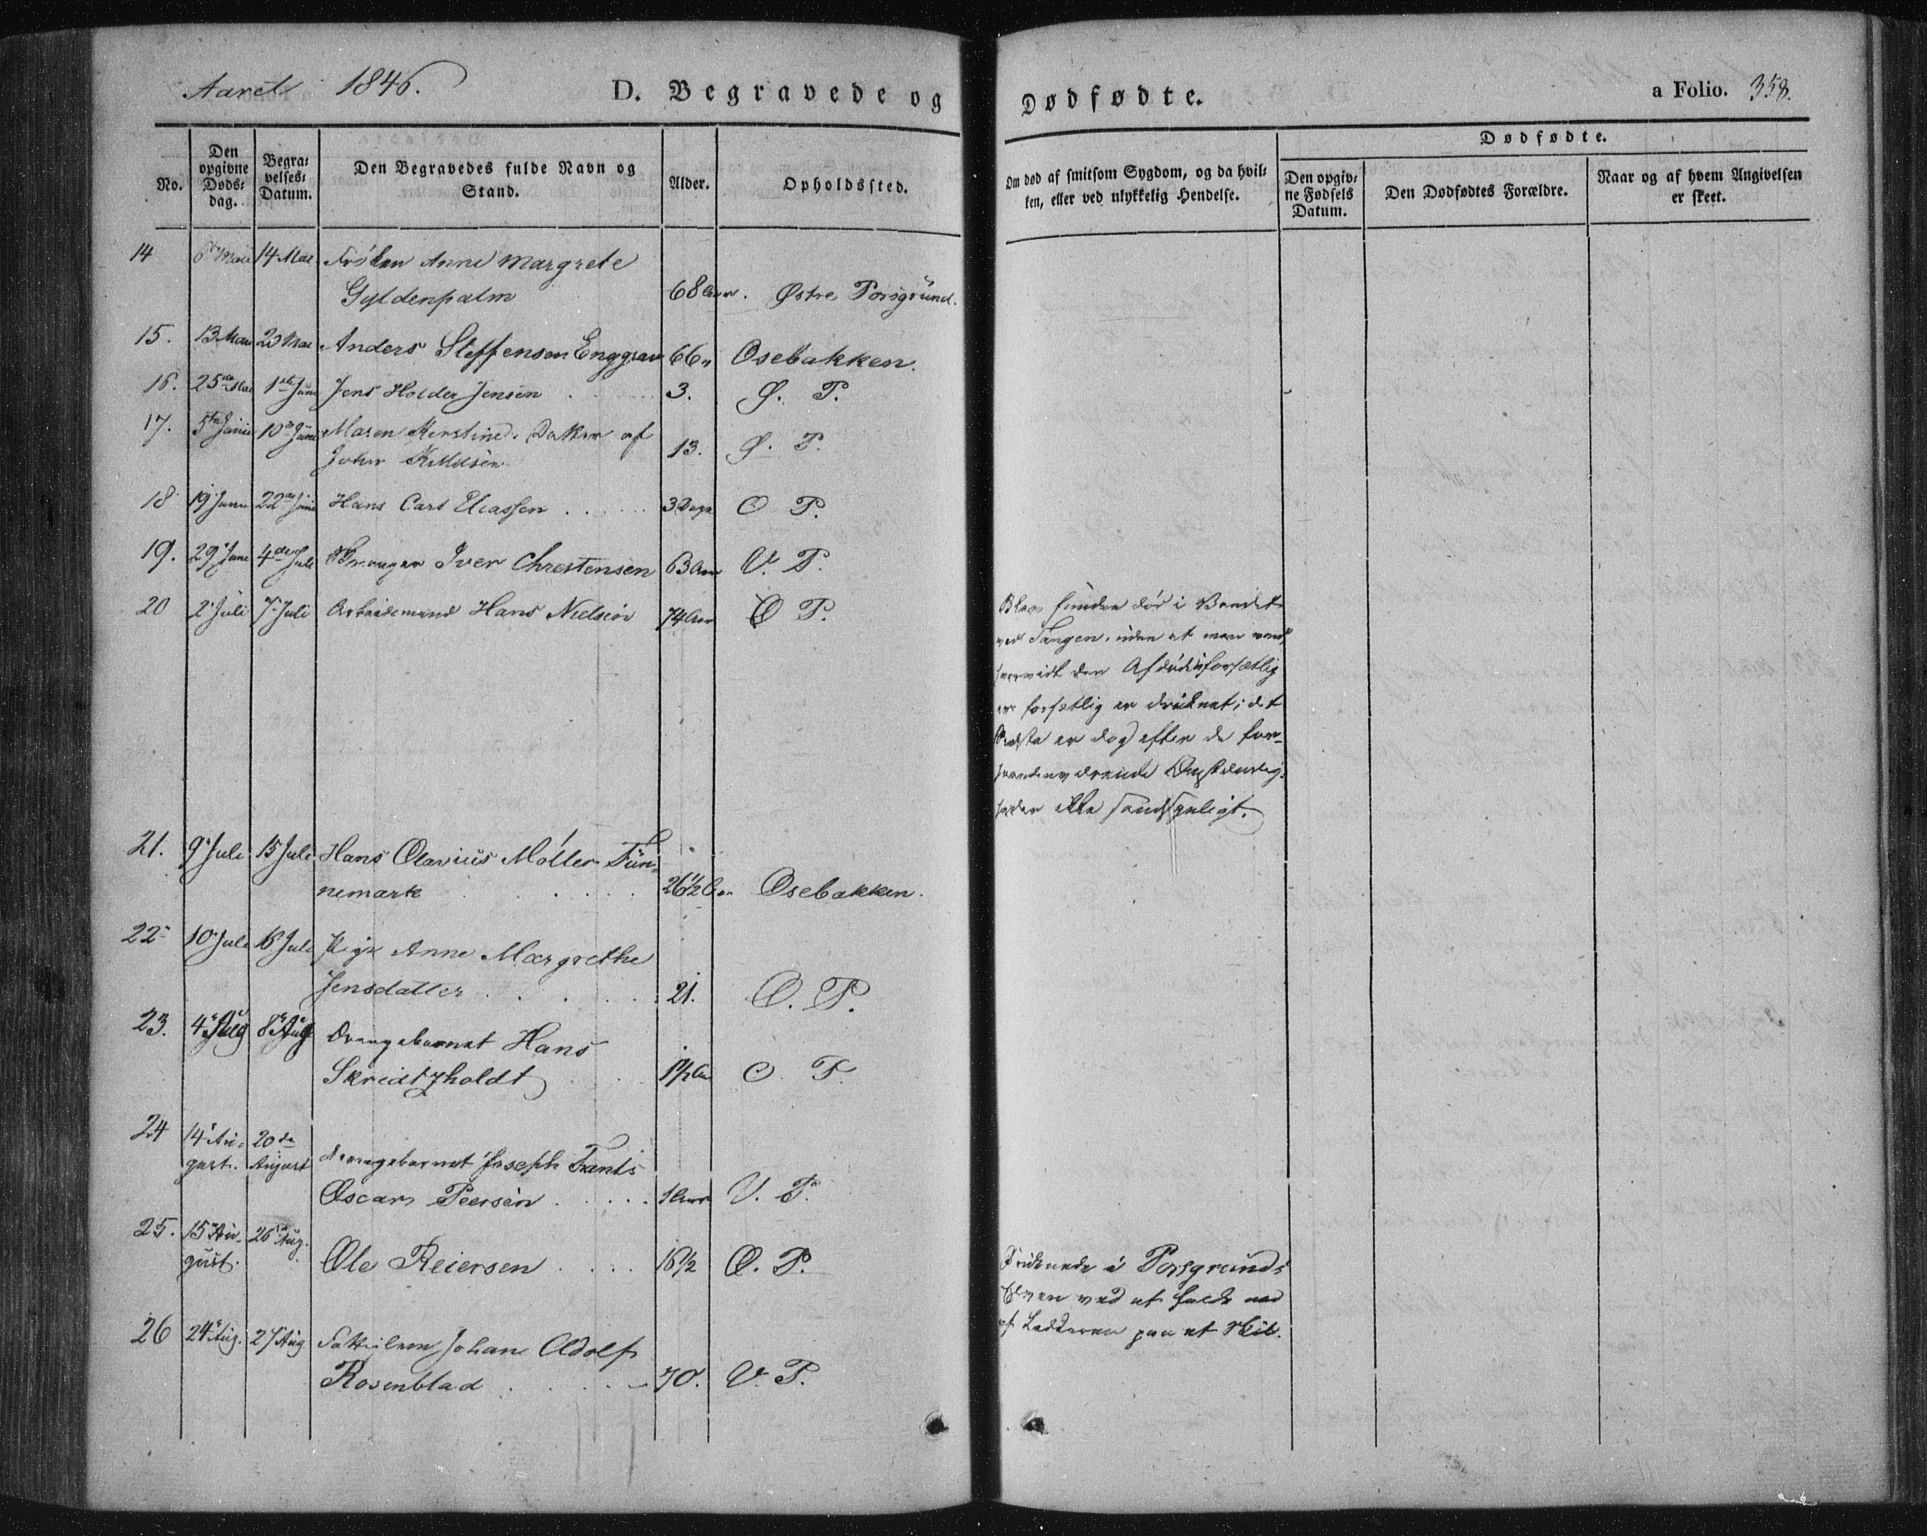 Aaret 1846. D. Begravede og Dødfødte. a Folio. 358.
No. Den opgivne Døds-dag. Begravelses-Datum. Den Begravedes fulde Navn og Stand. Alder. Opholdssted. Om død af smitsom Sygdom, og da hvilken, eller ved ulykkelig Hendelse. Dødfødte.
Den opgivne Fødsels Datum. Den Dødfødtes Forældre. Naar og af hvem Angivelsen er skeet.
14 6 Mai 14 Mai Frøken Anne Margrete
Gyldenpalm 68 Aar. Østre Porsgrund.
15. 13 Mai 23 Mai Anders Steffensen Enggrav 66 Osebakken.
16. 25de Mai 1ste Juni Jens Holder Jensen 3. Ø. P.
17. 5te Junie 10de Juni Maren Kerstine. Datter af
John Knudsen 13. Ø. P.
18 19 Juni 22de Juni Hans Carl Eliassen 3 Dage O P.
19. 29 Juni 4de Juli Iver Chrestensen 63 Aar V. P.
20 2 Juli 7 Juli Arbeidsmand Hans Nielsen 74 Aar O P.
Blev funden død i Vandet
ved Tangen, uden at man veed
den Afdøde forsætlig
forsætlig er druknet; det
er dog efter de for-
haandenværende Omstændig-
heder ikke sandsynligt.
21. 9 Juli 15 Juli Hans Olavius Møller Tün-
nemark 26 1/2 Aar Osebakken.
22 10 Juli 16 Juli Pige Anne Margrethe
Jensdatter 21. O. P.
23. 4 Aug 8 Aug Drengebarnet Hans
Skredtzholdt 1 1/2 Aar O. P.
24 14 Au-
gust. 20de
August Drengebarnet Joseph Frants
Oscar Peersen 1 Aar V. P.
25. 15 Au-
gust. 26 Aug. Ole Reiersen 16 1/2 O. P.
Druknede i Porsgrunds
Elven ved at falde ned
af Ladderen paa et Skib.
26 24 Aug. 27 Aug Johan Adolf
Rosenblad 70. V. P.